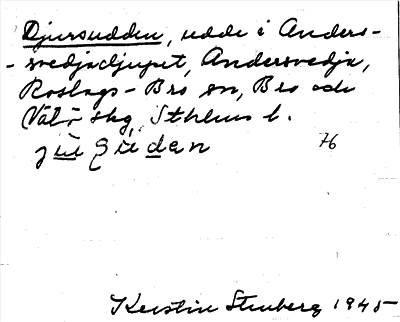 Djursudden, udde i Anders-
- svedjadjupet, Andersvedja,
Roslags-Bro sn, Bro och
Vätö skg, Sthlms l.
76
Kerstin Stenberg 1945